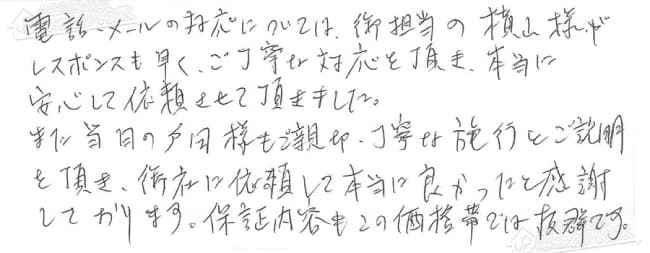 電話、メールの対応については、御担当の横山様が
レスポンスも早く、ご丁寧な対応を頂き、本当に
安心して依頼させて頂きました。
また当日の戸田様もご親切、丁寧な施行とご説明
を頂き、御社に依頼して本当に良かったと感謝
しております。保証内容もこの価格帯では抜群です。